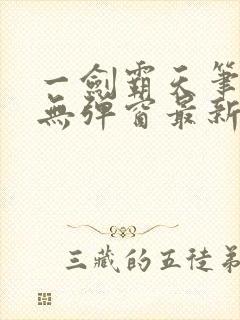 一劍霸天筆
無彈窗最新
三藏的五徒弟